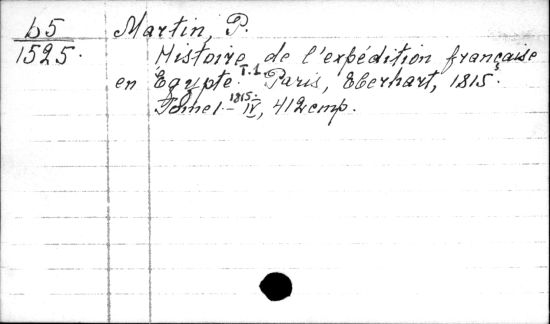 b5
1525.
Martin, P.
Histoire de l'expédition française
en Égypte. T.1. Paris, Eberhart, 1815.
Tome 1 - 1815. IV, 412 стр.